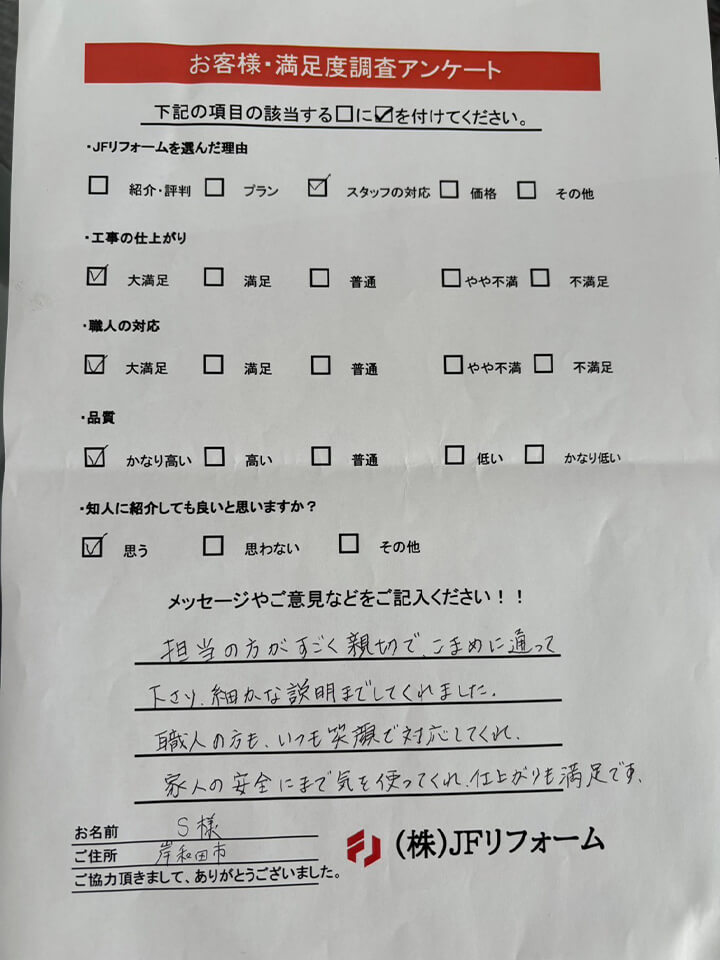 お客様・満足度調査アンケート
下記の項目の該当する□に☑を付けてください。
・JFリフォームを選んだ理由
□ 紹介・評判 □ プラン ☑ スタッフの対応 □ 価格 □ その他
・工事の仕上がり
☑ 大満足 □ 満足 □ 普通 □ やや不満 □ 不満足
・職人の対応
☑ 大満足 □ 満足 □ 普通 □ やや不満 □ 不満足
・品質
☑ かなり高い □ 高い □ 普通 □ 低い □ かなり低い
・知人に紹介しても良いと思いますか?
☑ 思う □ 思わない □ その他
メッセージやご意見などをご記入ください!!
担当の方がすごく親切で、こまめに通って
下さり、細かな説明までしてくれました。
職人の方も、いつも笑顔で対応してくれ、
家人の安全にまで気を使ってくれ、仕上がりも満足です。
お名前 S様
ご住所 岸和田市
(株)JFリフォーム
ご協力頂きまして、ありがとうございました。